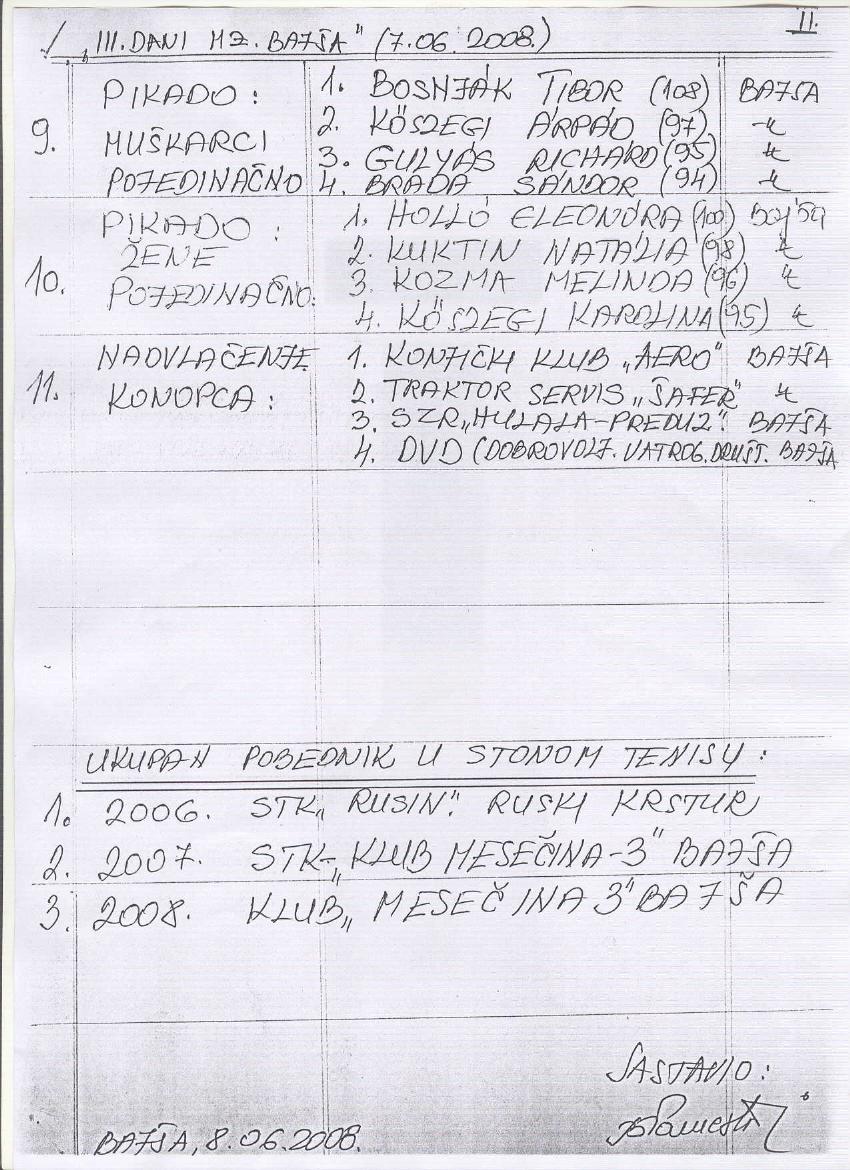 II.
„III. DANI MZ. BAJŠA" (7.06.2008.)
9. PIKADO: MUŠKARCI POJEDINAČNO
1. BOSNJÁK TIBOR (108) BAJŠA
2. KŐSZEGI ÁRPÁD (97) -"-
3. GULYÁS RICHÁRD (95) "
4. BRADA SÁNDOR (94) -"
10. PIKADO: ŽENE POJEDINAČNO:
1. HOLLÓ ELEONÓRA (100) Bajša
2. KUKTIN NATÁLIA (98) "
3. KOZMA MELINDA (96) "
4. KŐSZEGI KAROLINA (95) "
11. NADVLAČENJE KONOPCA:
1. KONJIČKI KLUB „AERO" BAJŠA
2. TRAKTOR SERVIS „ŠAFER" "
3. SZR„HULALA-PREDUZ". BAJŠA
4. DVD (DOBROVOLJ. VATROG. DRUŠT. BAJŠA
UKUPAN POBEDNIK U STONOM TENISU:
1. 2006. STK„ RUSIN". RUSKI KRSTUR
2. 2007. STK-„KLUB MESEČINA-3" BAJŠA
3. 2008. KLUB„ MESEČINA 3" BAJŠA
SASTAVIO:
BAJŠA, 8.06.2008.